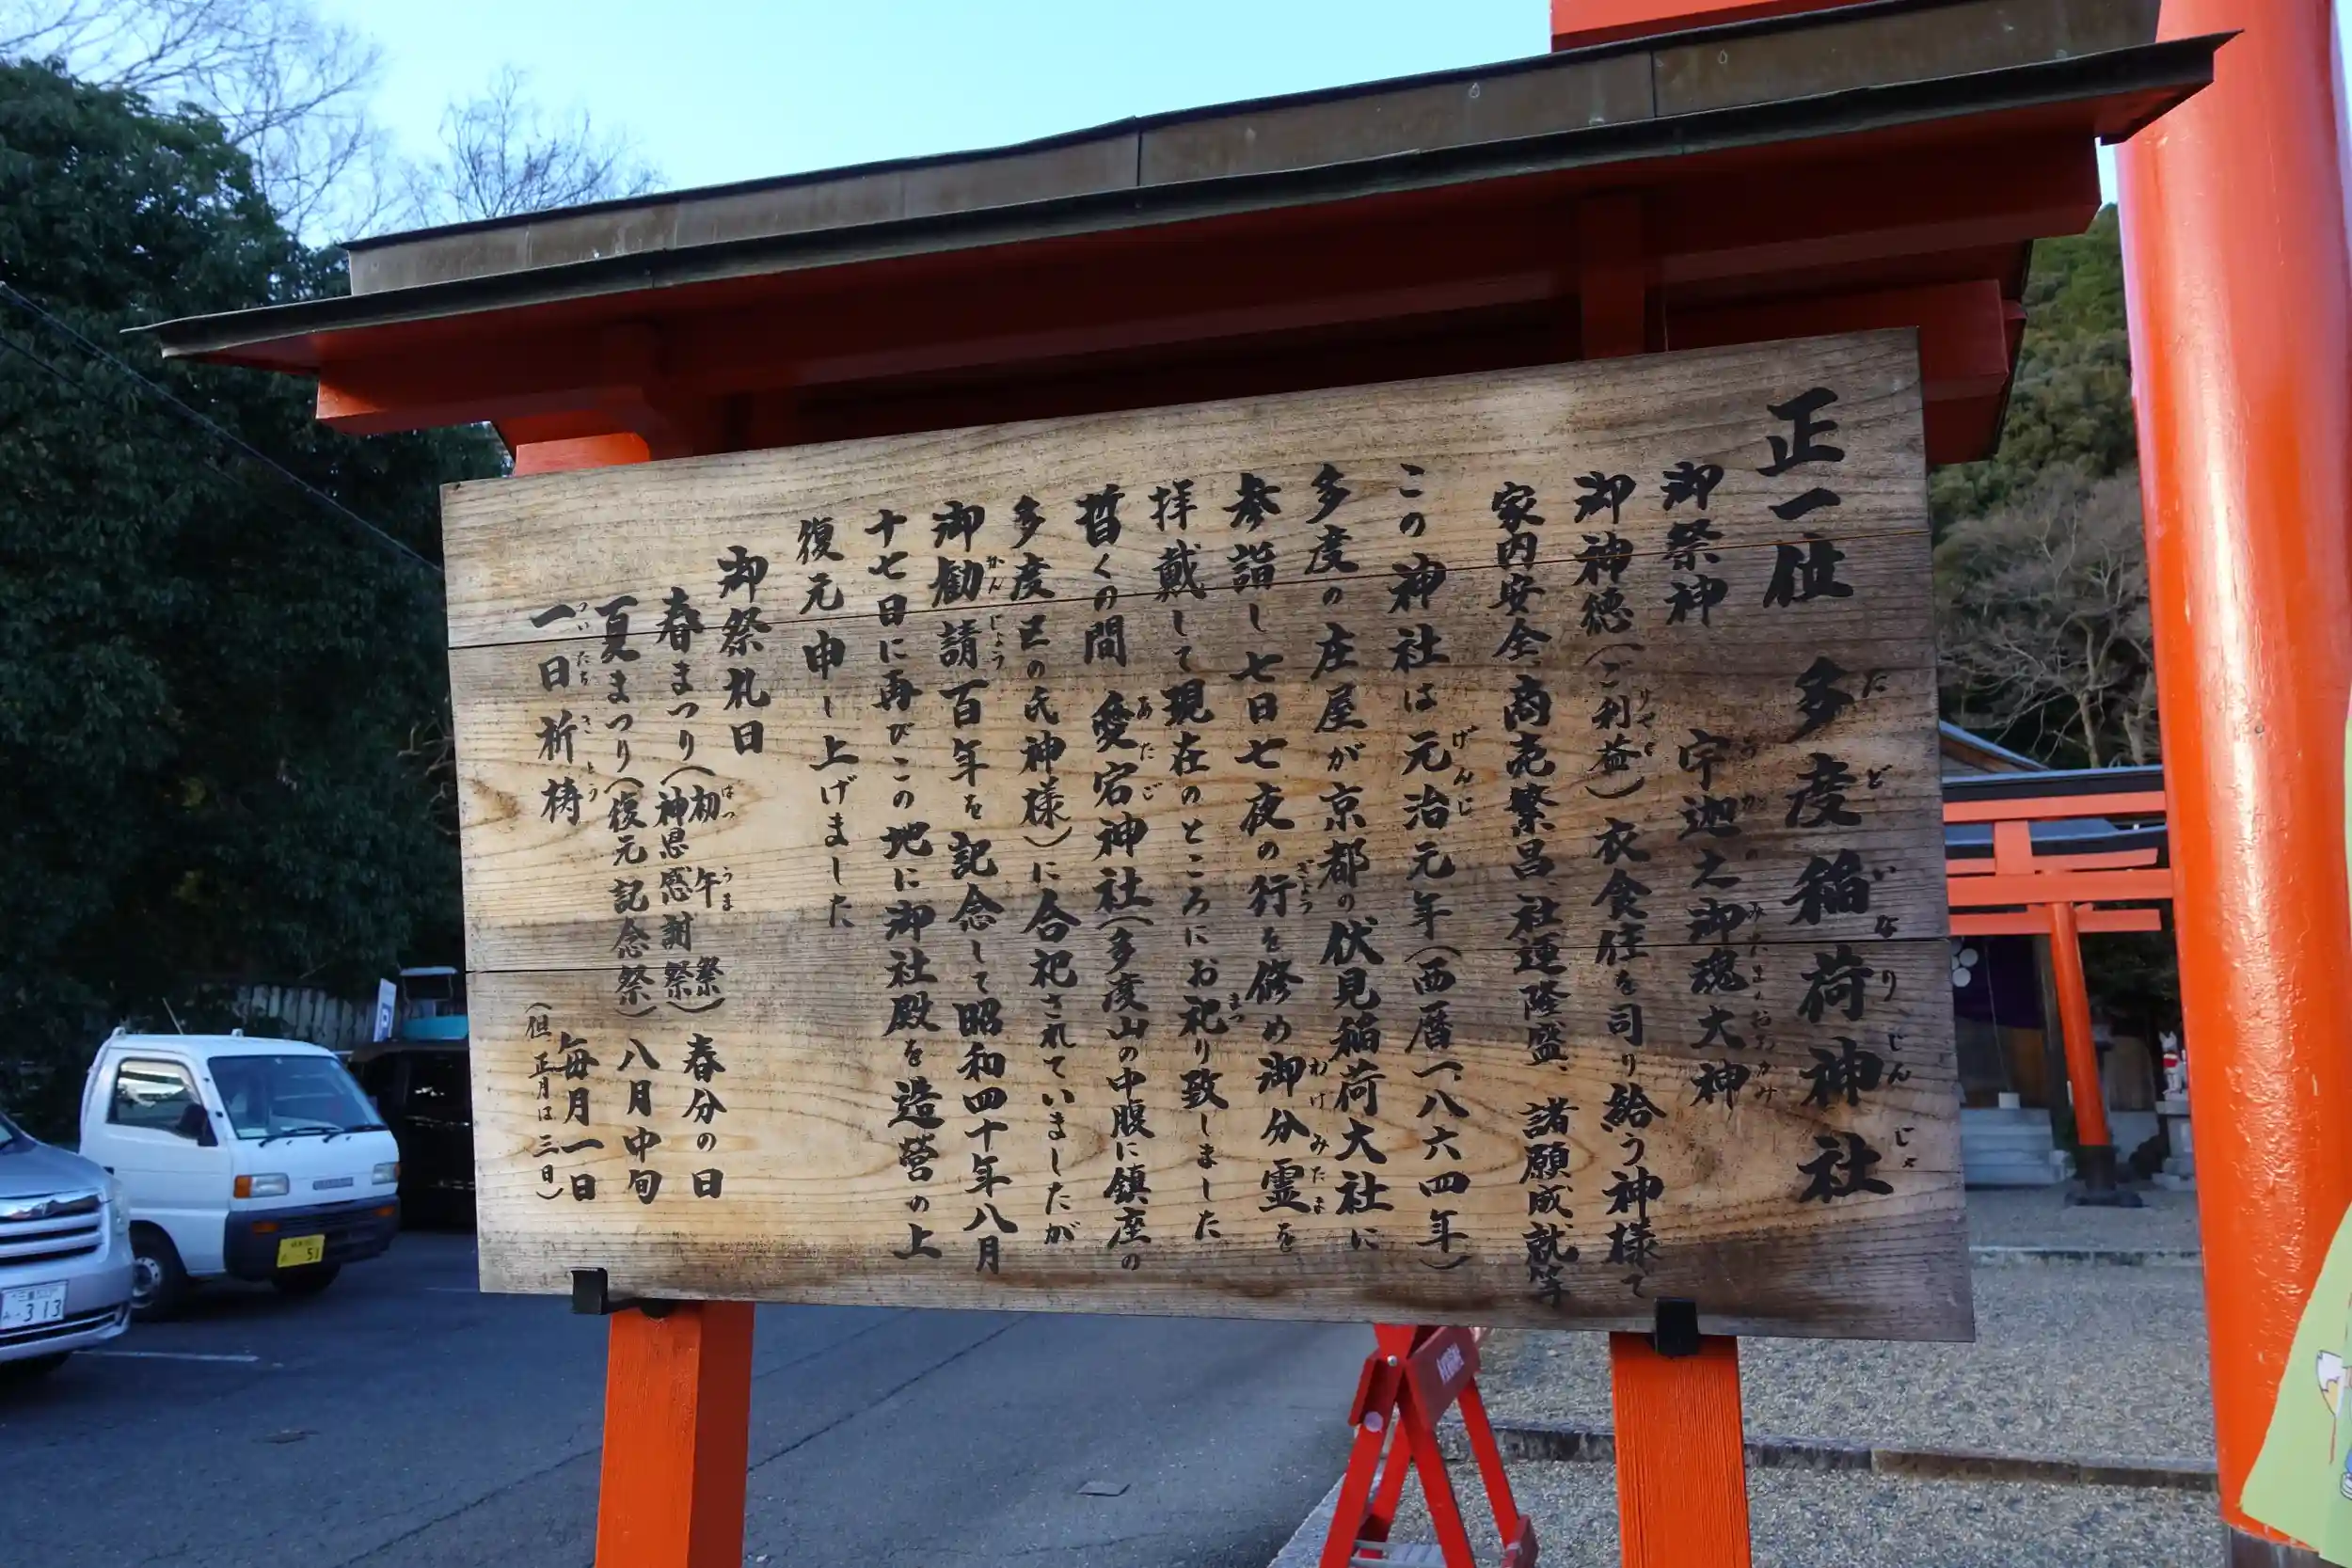 正一位 多度稲荷神社
御祭神 宇迦之御魂大神
御神徳(ご利益)衣食住を司り給う神様で
家内安全、商売繁昌、社運隆盛、諸願成就等
この神社は元治元年(西暦一八六四年)
多度の庄屋が京都の伏見稲荷大社に
参詣し七日七夜の行を修め御分霊を
拝戴して現在のところにお祀り致しました
暫くの間 愛宕神社(多度山の中腹に鎮座の
多度区の氏神様)に合祀されていましたが
御勧請百年を記念して昭和四十年八月
十七日に再びこの地に御社殿を造営の上
復元申し上げました
御祭礼日
春まつり(初午祭 神恩感謝祭) 春分の日
夏まつり(復元記念祭) 八月中旬
一日祈祷 毎月一日
(但 正月は三日)
51
313